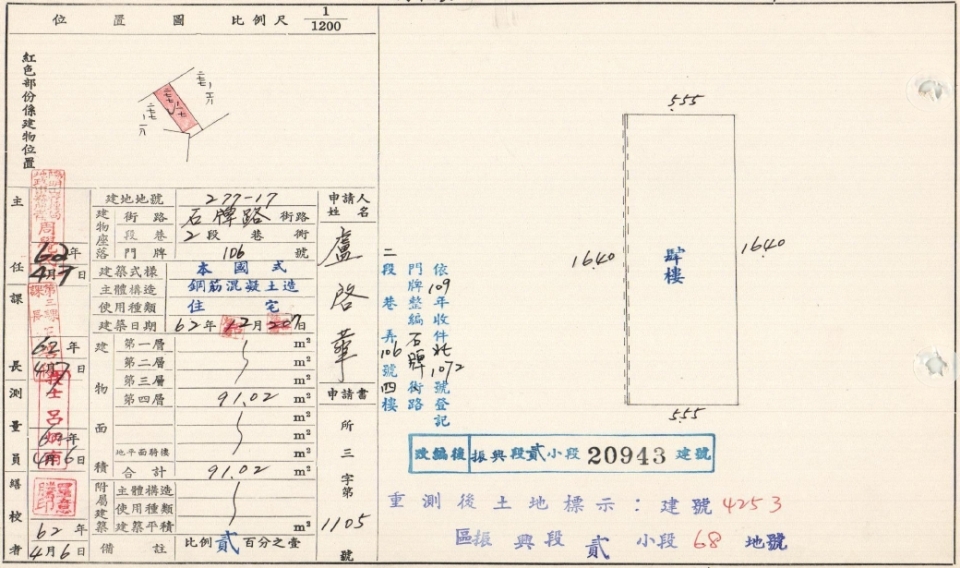 位置圖 比例尺 1/1200
紅色部份係建物位置
建地地號 277-17
建物座落 街路 石牌路 街路
段巷 2段 巷 衖
門牌 106 號
建築式樣 本國式
主體構造 鋼筋混凝土造
使用種類 住宅
建築日期 62年 12月 20日
建物面積
第一層 m²
第二層 m²
第三層 m²
第四層 91.02 m²
m²
m²
地平面騎樓 m²
合計 91.02 m²
附屬建築
主體構造
使用種類
建築平積 m²
備註 比例貳百分之壹
申請人姓名
盧啓華
申請書
所三字第1105號
主任
62年
4月7日
課長
62年
4月7日
測量員
4月6日
繕校者
62年
4月6日
5.55
16.40
肆樓
16.40
5.55
依109年收件北1072號登記
門牌整編石牌街路
二段巷弄106號四樓
改編後 振興段貳小段 20943 建號
重測後土地標示：建號4253
區振興段貳小段68地號